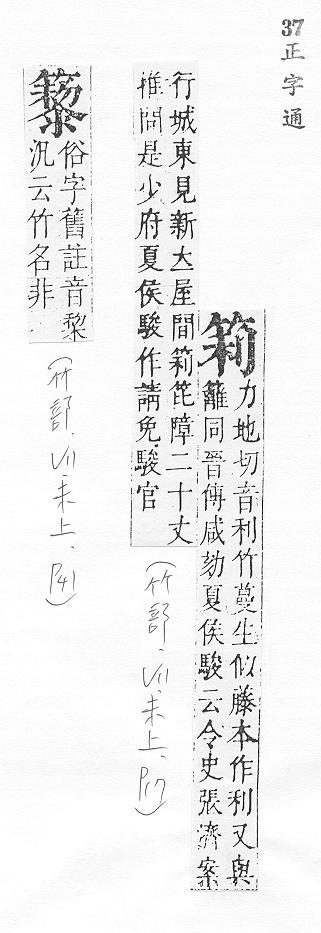 37
正字通
筣
力地切音利竹蔓生似藤本作利又與
籬同晉傅咸劾夏侯駿云令史張濟案
行城東見新立屋間筣笓障二十丈
推問是少府夏侯駿作請免駿官
(竹部.VII.未上.P17)
俗字舊註音黎
汎云竹名非
(竹部.VII.未上.P41)